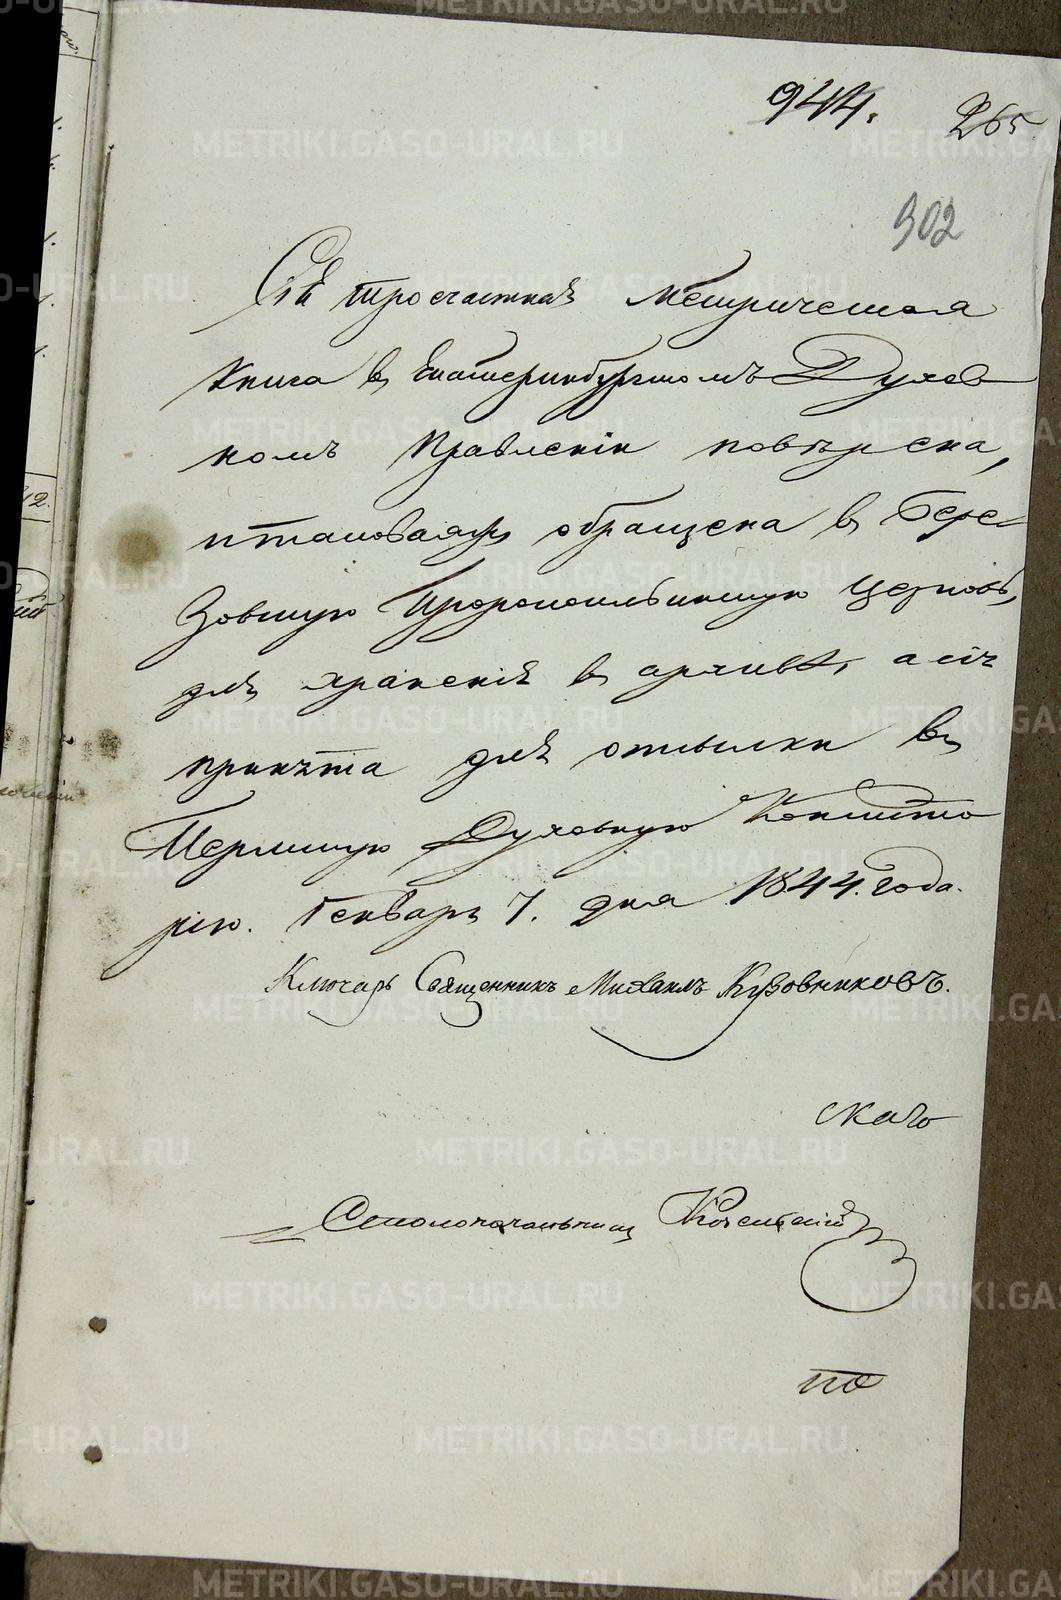 944. 265
302
Сія троечастная Метрическая
книга въ Екатеринбургскомъ Духов
номъ Правленіи повѣрена,
и таковая обращена въ Бере-
зовскую Пророкоильинскую церковь,
для храненія въ архивѣ, а сія
принята для отсылки въ
Пермскую Духовную Консисто
рію. Генваря 7. дня 1844. года.
Ключарь Священникъ Михаилъ Кузовниковъ.
скаго
Столоначальникъ
по
METRIKI.GASO-URAL.RU